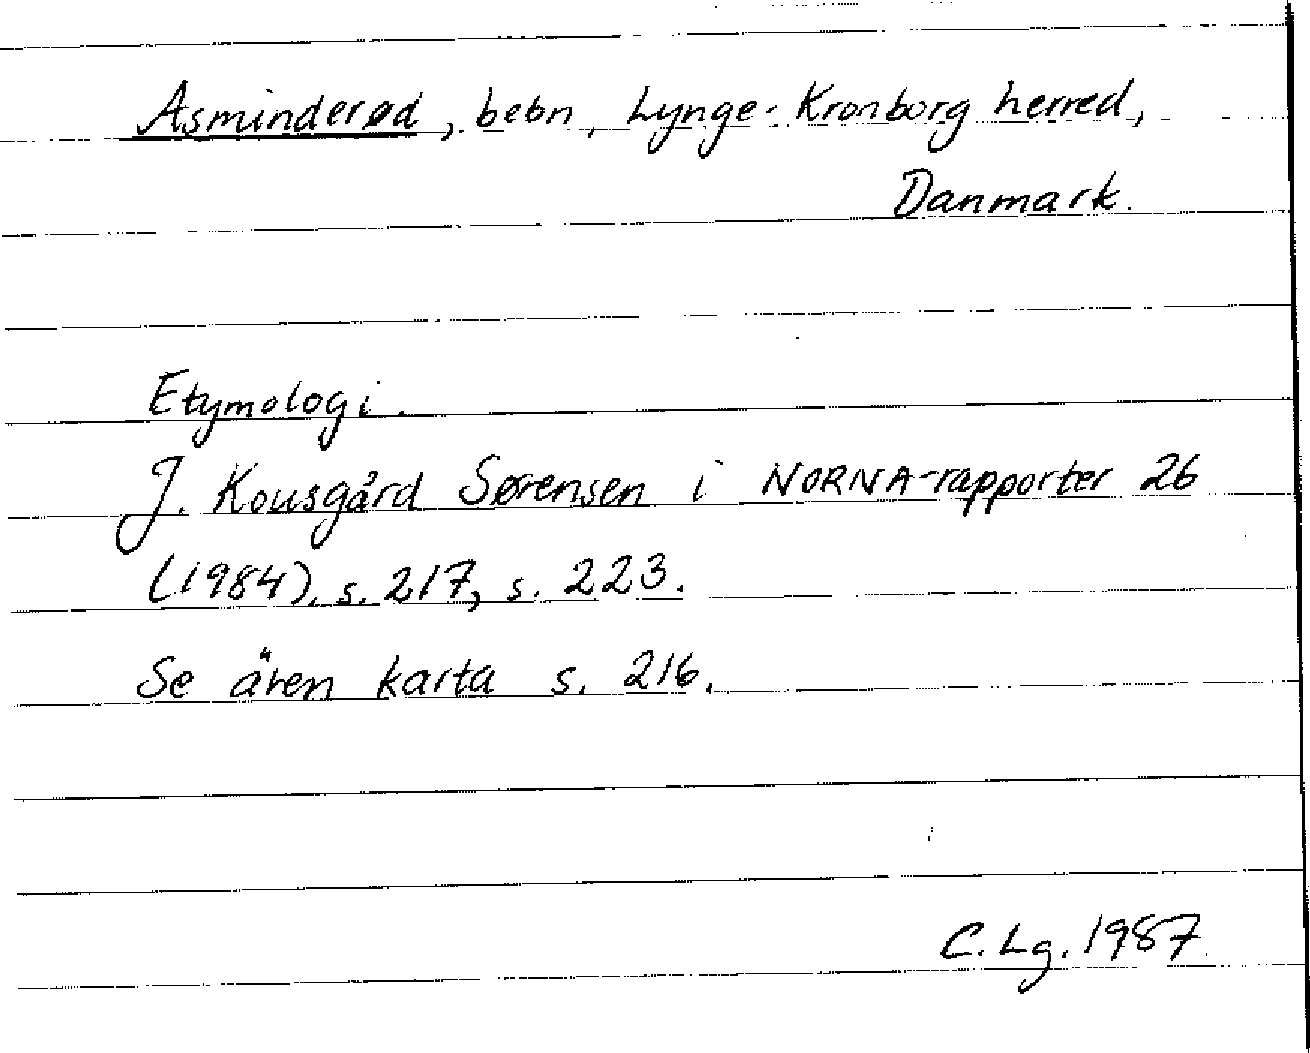 Asminderød, bebn, Lynge-Kronborg herred,
Danmark.
Etymologi.
J. Kousgård Sørensen i NORNA-rapporter 26
(1984), s. 217, s. 223.
Se även karta s. 216.
C. Lg. 1987.